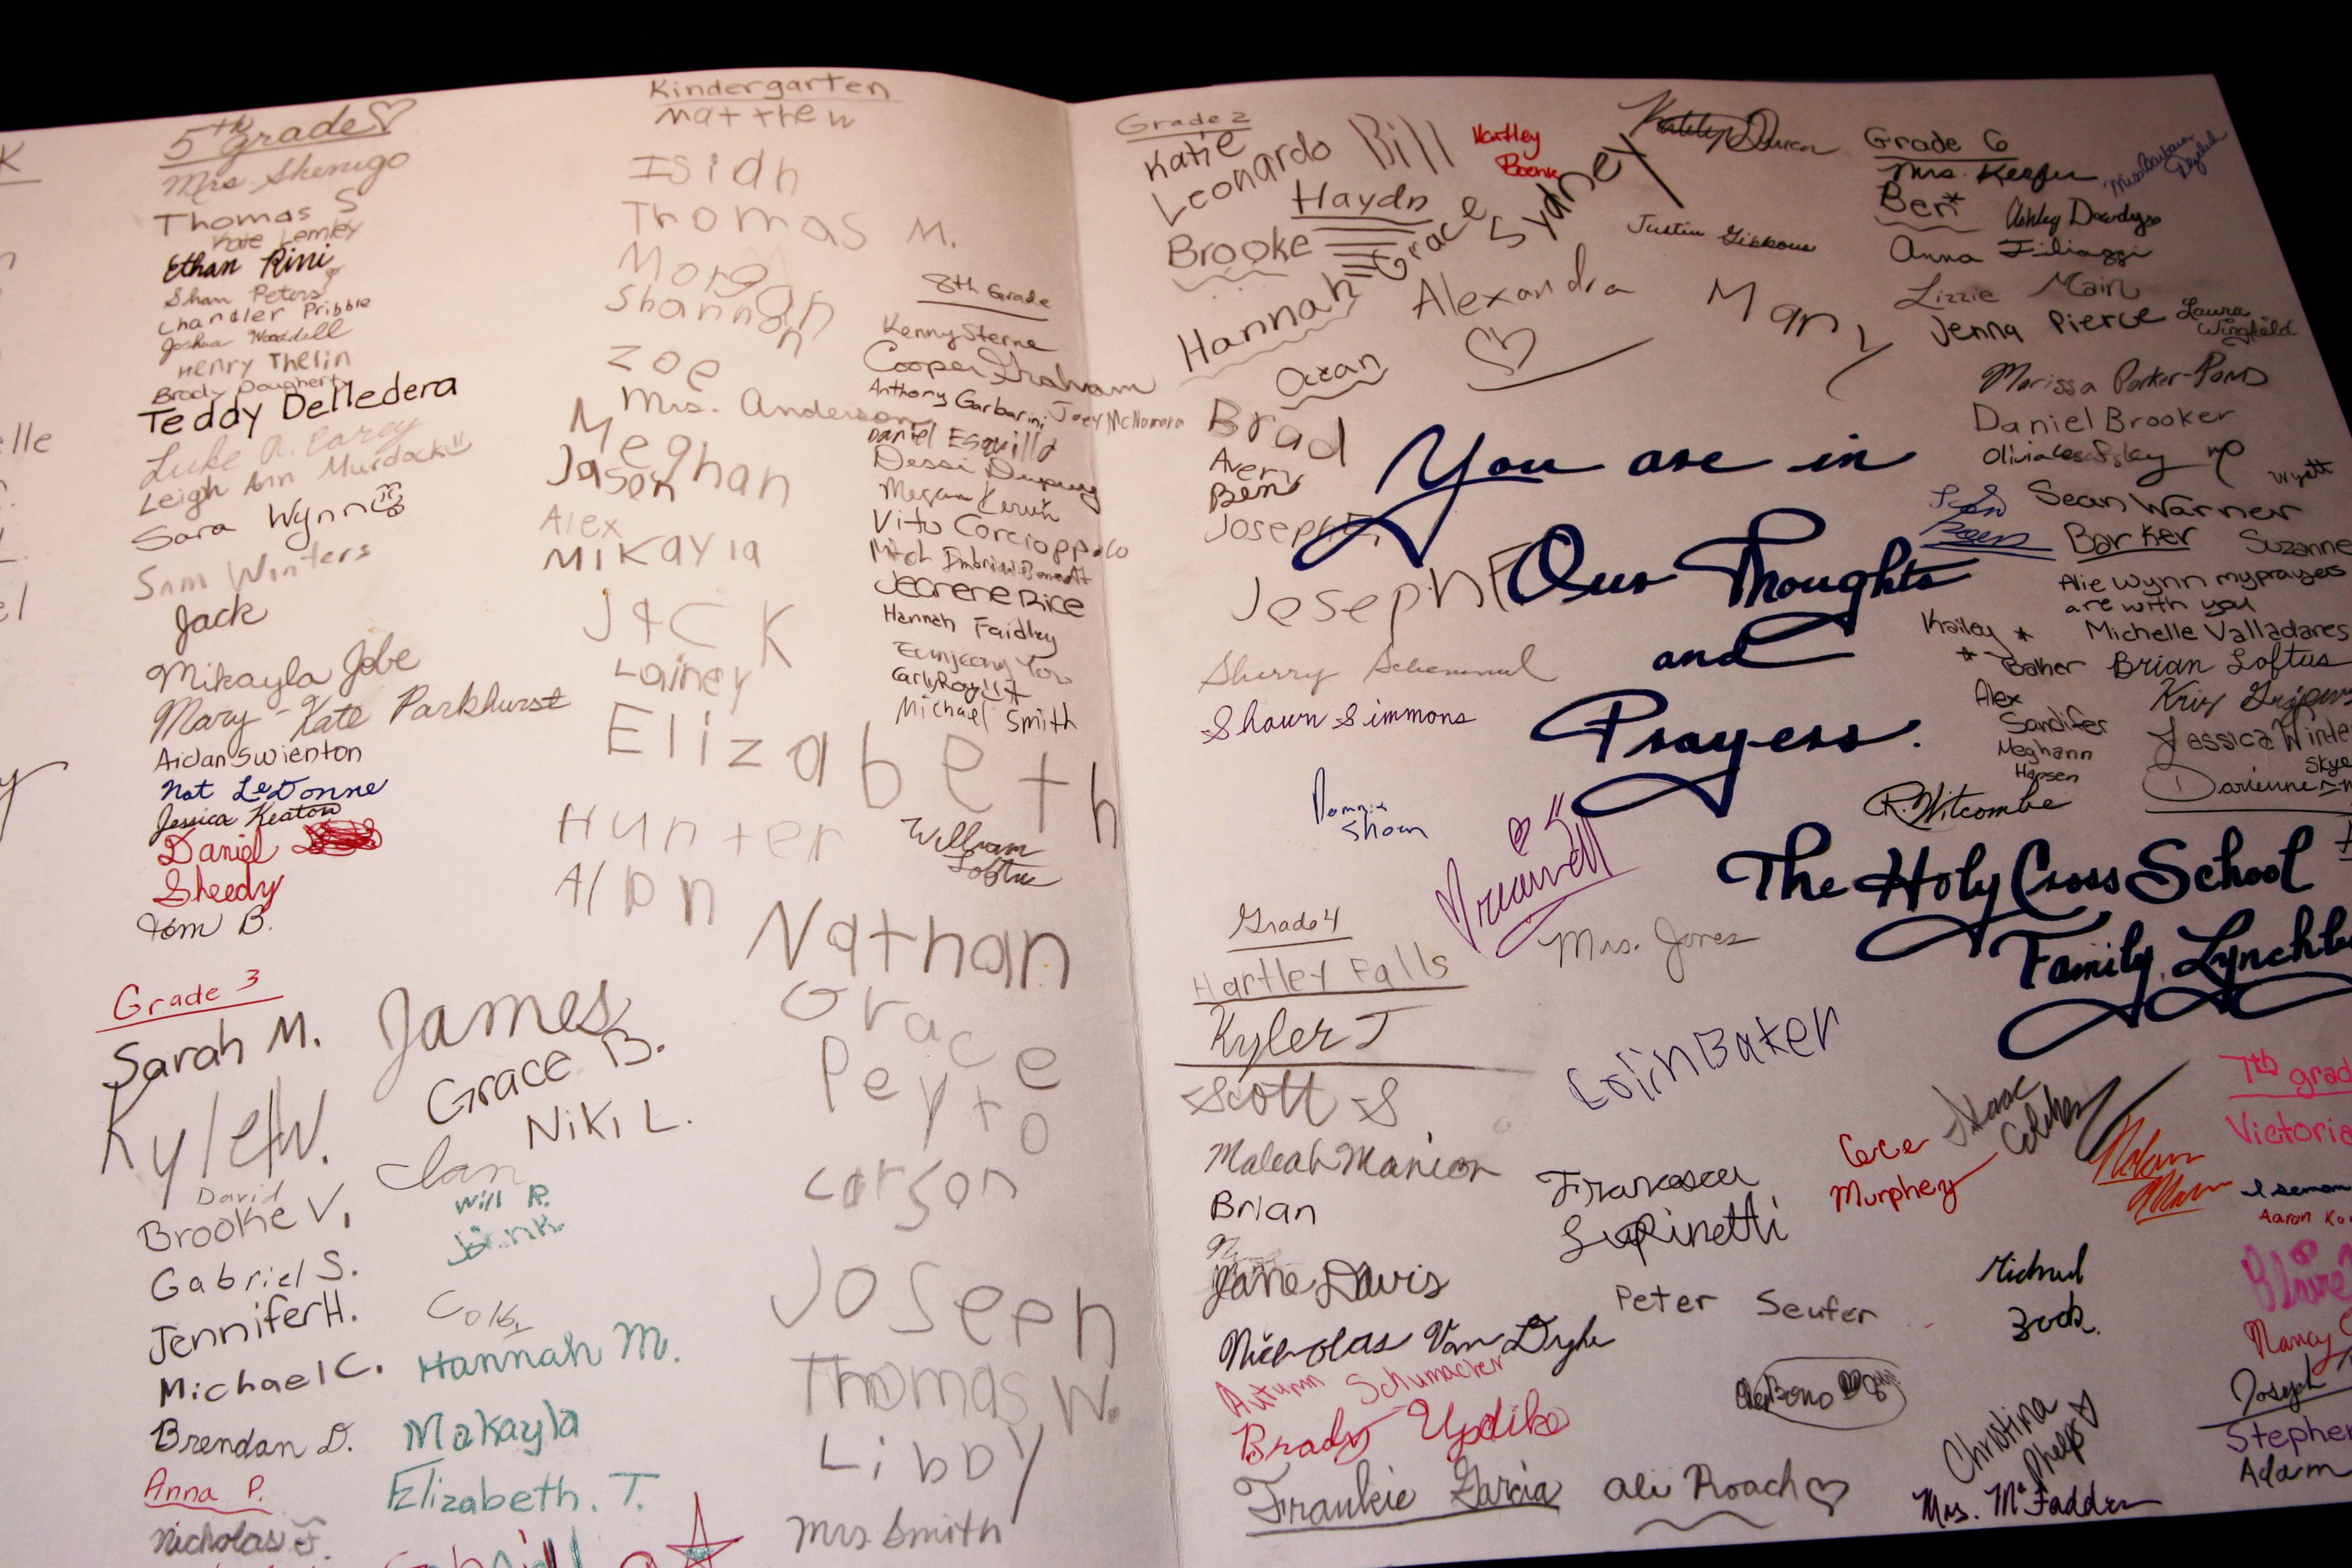 K
elle
el
5th grade
Mrs. Shenigo
Thomas S
Kate Lemley
Ethan Rini
Shan Peters
Chandler Pribble
Joshua Waddell
Henry Thelin
Brody Dougherty
Teddy Delledera
Luke A. Carey
Leigh Ann Murdock
Sara Wynn
Sam Winters
Jack
Mikayla Jobe
Mary-Kate Parkhurst
Aidan Swienton
Nat LeDonne
Jessica Keaton
Daniel
Sheedy
Tom B.
Grade 3
Sarah M.
Kyle W.
David
Brooke V.
Gabriel S.
Jennifer H.
Michael C.
Brendan D.
Anna P.
Nicholas J.
James
Grace B.
Niki L.
Ian
Will R.
Colby
Hannah M.
Makayla
Elizabeth. T.
Kindergarten
Matthew
Isiah
Thomas M.
Morgan
Shannon
Zoe
Mrs. Anderson
Meghan
Jason
Alex
Mikayla
Jack
Lainey
Elizabeth
Hunter
Nathan
Grace
Peyto
Carson
Joseph
Thomas W.
Libby
Mrs Smith
8th Grade
Kenny Sterne
Cooper Graham
Anthony Garbarini
Joey McNamara
Daniel Esquilla
Dessi
Megan
Vito Corcioppolo
Mitch
Jearene Rice
Hannah Faidley
Eunjeong Yoo
Carly Roy
Michael Smith
William
Loftus
Grade 2
Katie
Leonardo
Bill
Hartley
Haydn
Grace
Sydney
Brooke
Hannah
Alexandra
Mary
Ocean
Brad
Avery
Ben
Joseph E.
Joseph F
Sherry
Shawn Simmons
Justin Gibbons
You are in
Our Thoughts
and
Prayers.
The Holy Cross School
Family, Lynchbu
Grade 6
Mrs.
Ben*
Ashley
Anna Filiaggi
Lizzie Main
Jenna Pierce
Laura
Wingfield
Marissa Parker-Pond
Daniel Brooker
Olivia
Wyatt
Sean Warner
Barker
Suzanne
Alie Wynn my prayers
are with you
Kailey *
* Baker
Michelle Valladares
Brian Loftus
Alex
Sandifer
Meghann
Hansen
Jessica Winte
Skye
Darienne
R. Witcombe
Grade 4
Hartley Falls
Mrs. Jones
Kyler J
Scott S
Colin Baker
Maleah Manion
Brian
Francesca
Lupinetti
Cece
Murphey
Isaac
Jane Davis
Peter Seufer
Michael
Zock.
Nicholas Van Dyke
Autumn Schumacher
Brady Updike
Frankie Garcia
Ali Roach
Christina
Phelps
Mrs. McFadden
7th grad
Victoria
Aaron Ko
Nancy
Joseph
Stephe
Adam